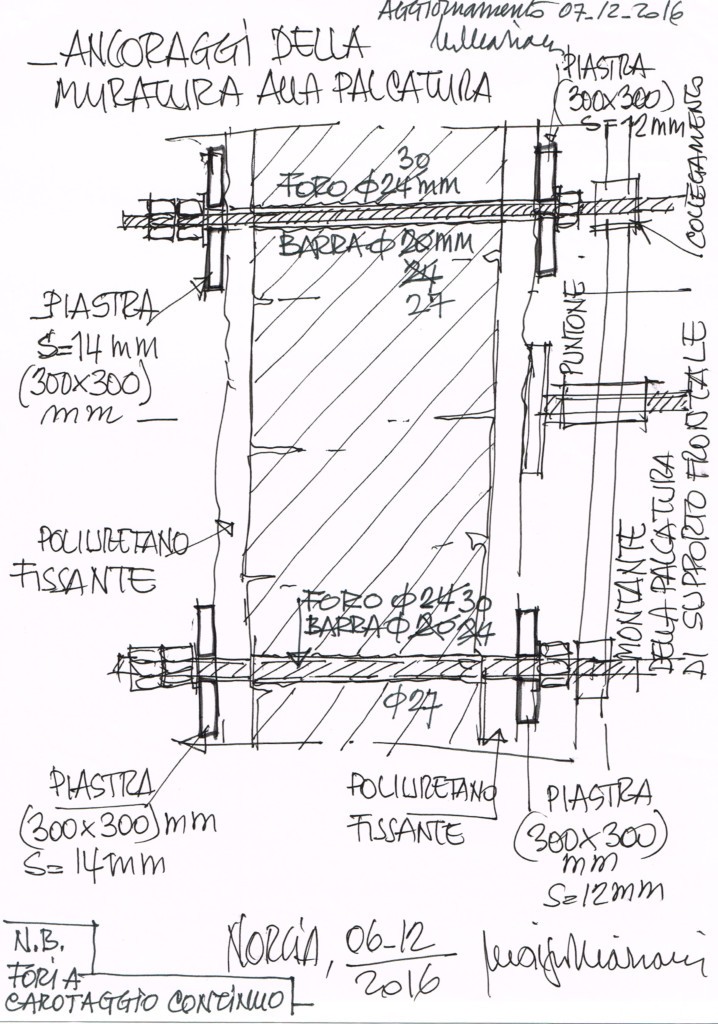 Aggiornamento 07-12-2016
_ANCORAGGI DELLA
MURATURA ALLA PALCATURA
PIASTRA
(300x300)
S=12mm
COLLEGAMENTO
30
FORO ϕ24mm
BARRA ϕ20mm
24
27
PIASTRA
S=14mm
(300x300)
mm
PUNTONE
POLIURETANO
FISSANTE
MONTANTE
DELLA PALCATURA
DI SUPPORTO FRONTALE
FORO ϕ24 30
BARRA ϕ20 24
ϕ27
PIASTRA
(300x300)mm
S=14mm
POLIURETANO
FISSANTE
PIASTRA
(300x300)
mm
S=12mm
N.B.
FORI A
CAROTAGGIO CONTINUO
NORCIA, 06-12
2016